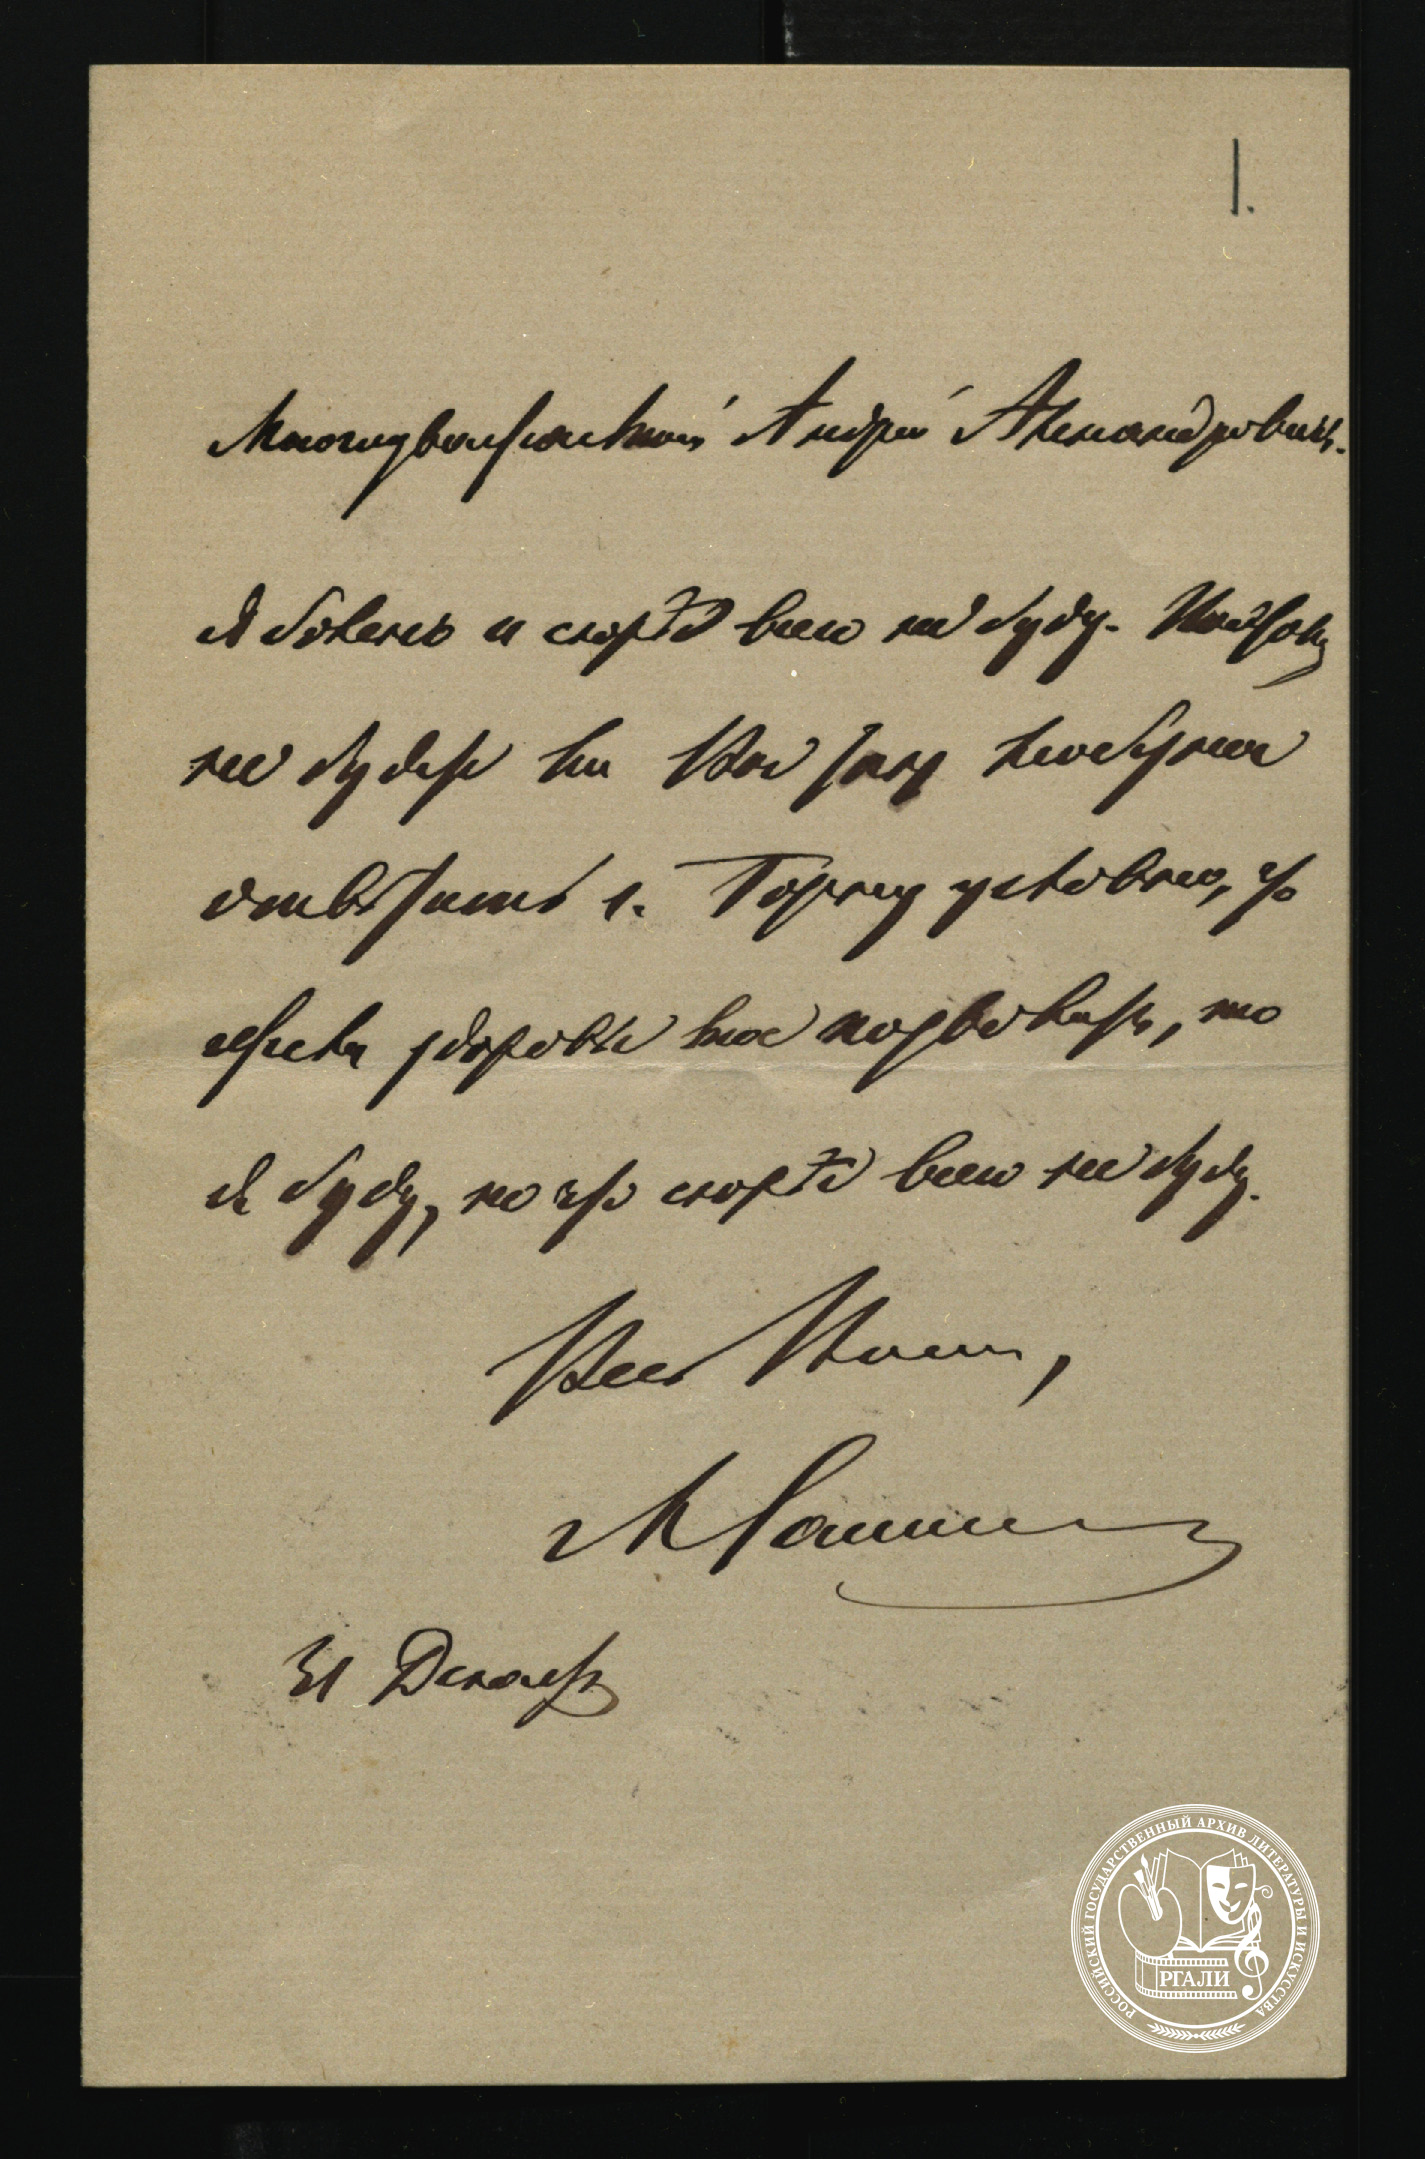 1.
Многоуважаемый Андрей Александровичъ.
Я боленъ и скорѣе всего не буду. Поэтому
не будете ли Вы такъ любезны
отвѣтить г. Герому условно, что
если здоровье мое позволитъ, то
я буду, но что скорѣе всего не буду.
Весь Вашъ,
31 Декабря
РОССИЙСКИЙ ГОСУДАРСТВЕННЫЙ АРХИВ ЛИТЕРАТУРЫ И ИСКУССТВА
РГАЛИ